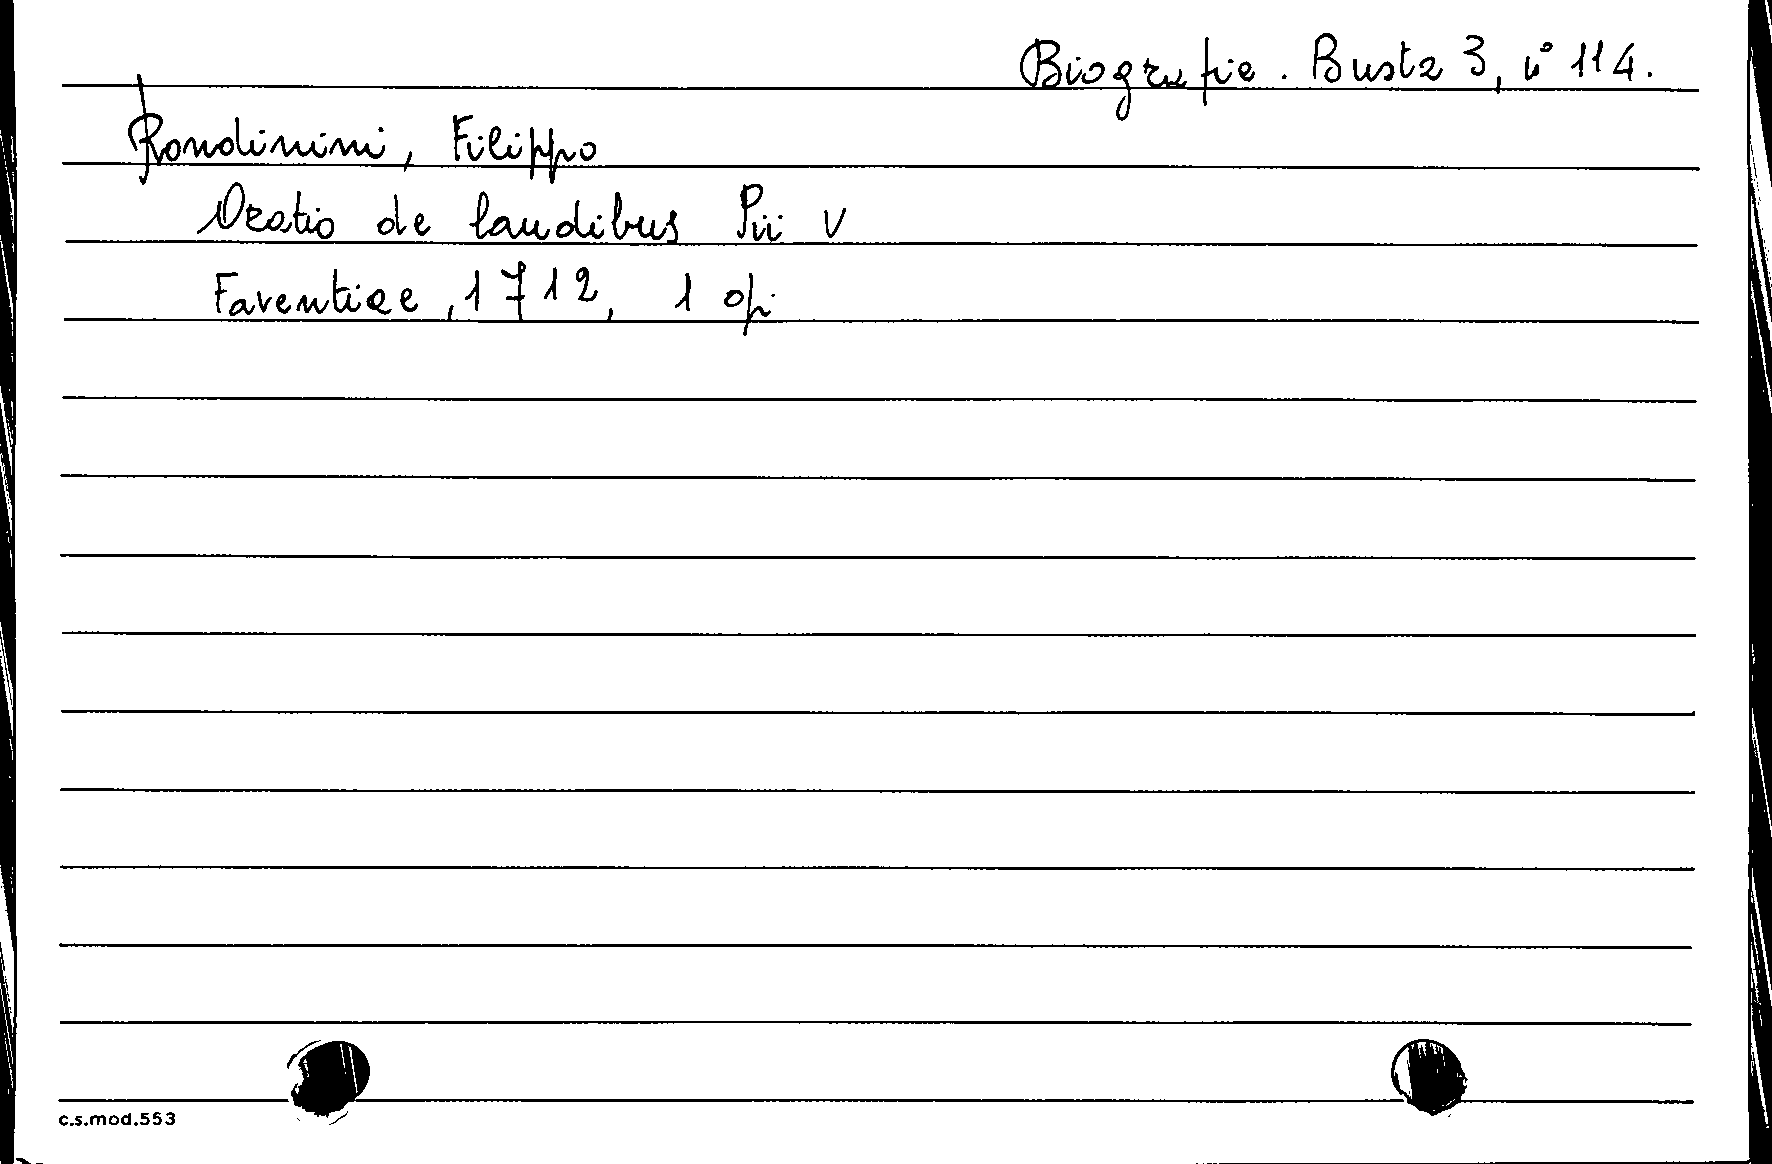 Biografie. Busta 3, n° 114.
Rondinini, Filippo
Oratio de laudibus Pii V
Faventiae, 1712, 1 op
c.s.mod.553